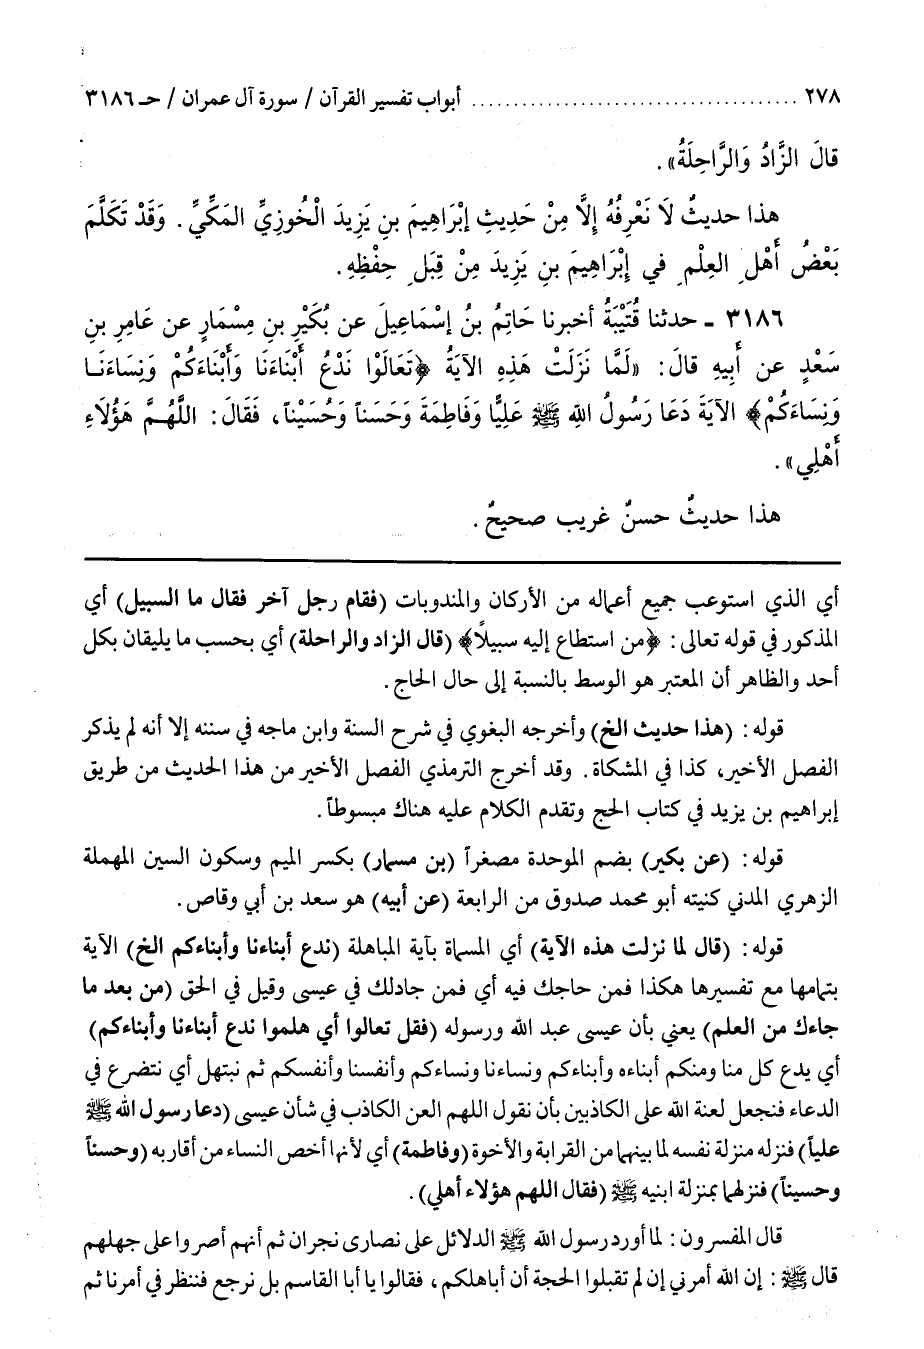 ٢٧٨ ....................................... أبواب تفسير القرآن / سورة آل عمران / حـ ٣١٨٦
قالَ الزَّادُ وَالرَّاحِلَةُ» .
هذا حديثٌ لَا نَعْرِفُهُ إلَّا مِنْ حَدِيثِ إبْرَاهِيمَ بنِ يَزِيدَ الْخُوزِيِّ المَكِّيِّ . وَقَدْ تَكَلَّمَ
بَعْضُ أَهْلِ العِلْمِ في إبْرَاهِيمَ بنِ يَزِيدَ مِنْ قِبَلِ حِفْظِهِ .
٣١٨٦ - حدثنا قُتَيْبَةُ أخبرنا حَاتِمُ بنُ إسْمَاعِيلَ عن بُكَيْرِ بنِ مِسْمَارٍ عن عَامِرِ بنِ
سَعْدٍ عن أَبِيهِ قالَ: «لَمَّا نَزَلَتْ هَذِهِ الآيَةُ ﴿تَعَالَوْا نَدْعُ أَبْنَاءَنَا وَأَبْنَاءَكُمْ وَنِسَاءَنَـا
وَنِسَاءَكُمْ﴾ الآيَةَ دَعَا رَسُولُ اللهِ ﷺ عَلِيًّا وَفَاطِمَةَ وَحَسَناً وَحُسَيْناً، فَقَالَ: اللَّهُمَّ هَؤُلَاءِ
أَهْلِي» .
هذا حديثٌ حسنٌ غريب صحيحٌ .
أي الذي استوعب جميع أعماله من الأركان والمندوبات (فقام رجل آخر فقال ما السبيل) أي
المذكور في قوله تعالى: ﴿من استطاع إليه سبيلاً﴾ (قال الزاد والراحلة) أي بحسب ما يليقان بكل
أحد والظاهر أن المعتبر هو الوسط بالنسبة إلى حال الحاج .
قوله: (هذا حديث الخ) وأخرجه البغوي في شرح السنة وابن ماجه في سننه إلا أنه لم يذكر
الفصل الأخير، كذا في المشكاة. وقد أخرج الترمذي الفصل الأخير من هذا الحديث من طريق
إبراهيم بن يزيد في كتاب الحج وتقدم الكلام عليه هناك مبسوطاً .
قوله: (عن بكير) بضم الموحدة مصغراً (بن مسمار) بكسر الميم وسكون السين المهملة
الزهري المدني كنيته أبو محمد صدوق من الرابعة (عن أبيه) هو سعد بن أبي وقاص .
قوله: (قال لما نزلت هذه الآية) أي المسماة بآية المباهلة (ندع أبناءنا وأبناءكم الخ) الآية
بتمامها مع تفسيرها هكذا فمن حاجك فيه أي فمن جادلك في عيسى وقيل في الحق (من بعد ما
جاءك من العلم) يعني بأن عيسى عبد الله ورسوله (فقل تعالوا أي هلموا ندع أبناءنا وأبناءكم)
أي يدع كل منا ومنكم أبناءه وأبناءكم ونساءنا ونساءكم وأنفسنا وأنفسكم ثم نبتهل أي نتضرع في
الدعاء فنجعل لعنة الله على الكاذبين بأن نقول اللهم العن الكاذب في شأن عيسى (دعا رسول الله ﷺ
علياً) فنزله منزلة نفسه لما بينهما من القرابة والأخوة (وفاطمة) أي لأنها أخص النساء من أقاربه (وحسناً
وحسيناً) فنزلهما بمنزلة ابنيه ﷺ (فقال اللهم هؤلاء أهلي) .
قال المفسرون: لما أورد رسول الله ﷺ الدلائل على نصارى نجران ثم أنهم أصروا على جهلهم
قال ﷺ: إن الله أمرني إن لم تقبلوا الحجة أن أباهلكم، فقالوا يا أبا القاسم بل نرجع فننظر في أمرنا ثم